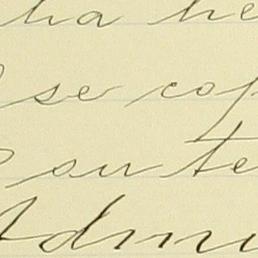 ha he
se cop
su te
Admi